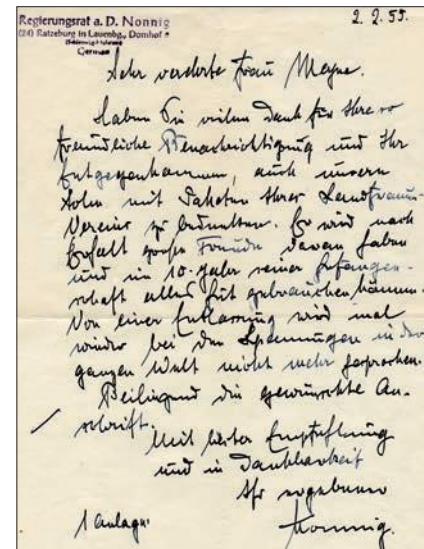 Regierungsrat a. D. Nonnig
(24) Ratzeburg in Lauenbg., Domhof
Germany
2. 2. 55.
Sehr verehrte Frau Meyne.
Haben Sie vielen Dank für Ihre so
freundliche Benachrichtigung und Ihr
Entgegenkommen, auch unsern
Sohn mit Paketen Ihres Landfrauen-
Vereins zu bedenken. Er wird nach
Erhalt große Freude davon haben
und im 10. Jahr seiner Gefangen-
schaft alles gut gebrauchen können.
Von einer Entlassung wird mal
wieder bei den Spannungen in der
ganzen Welt nicht mehr gesprochen.
Beiliegend die gewünschte An-
schrift.
Mit bester Empfehlung
und in Dankbarkeit
Ihr ergebener
Nonnig.
1 Anlage.